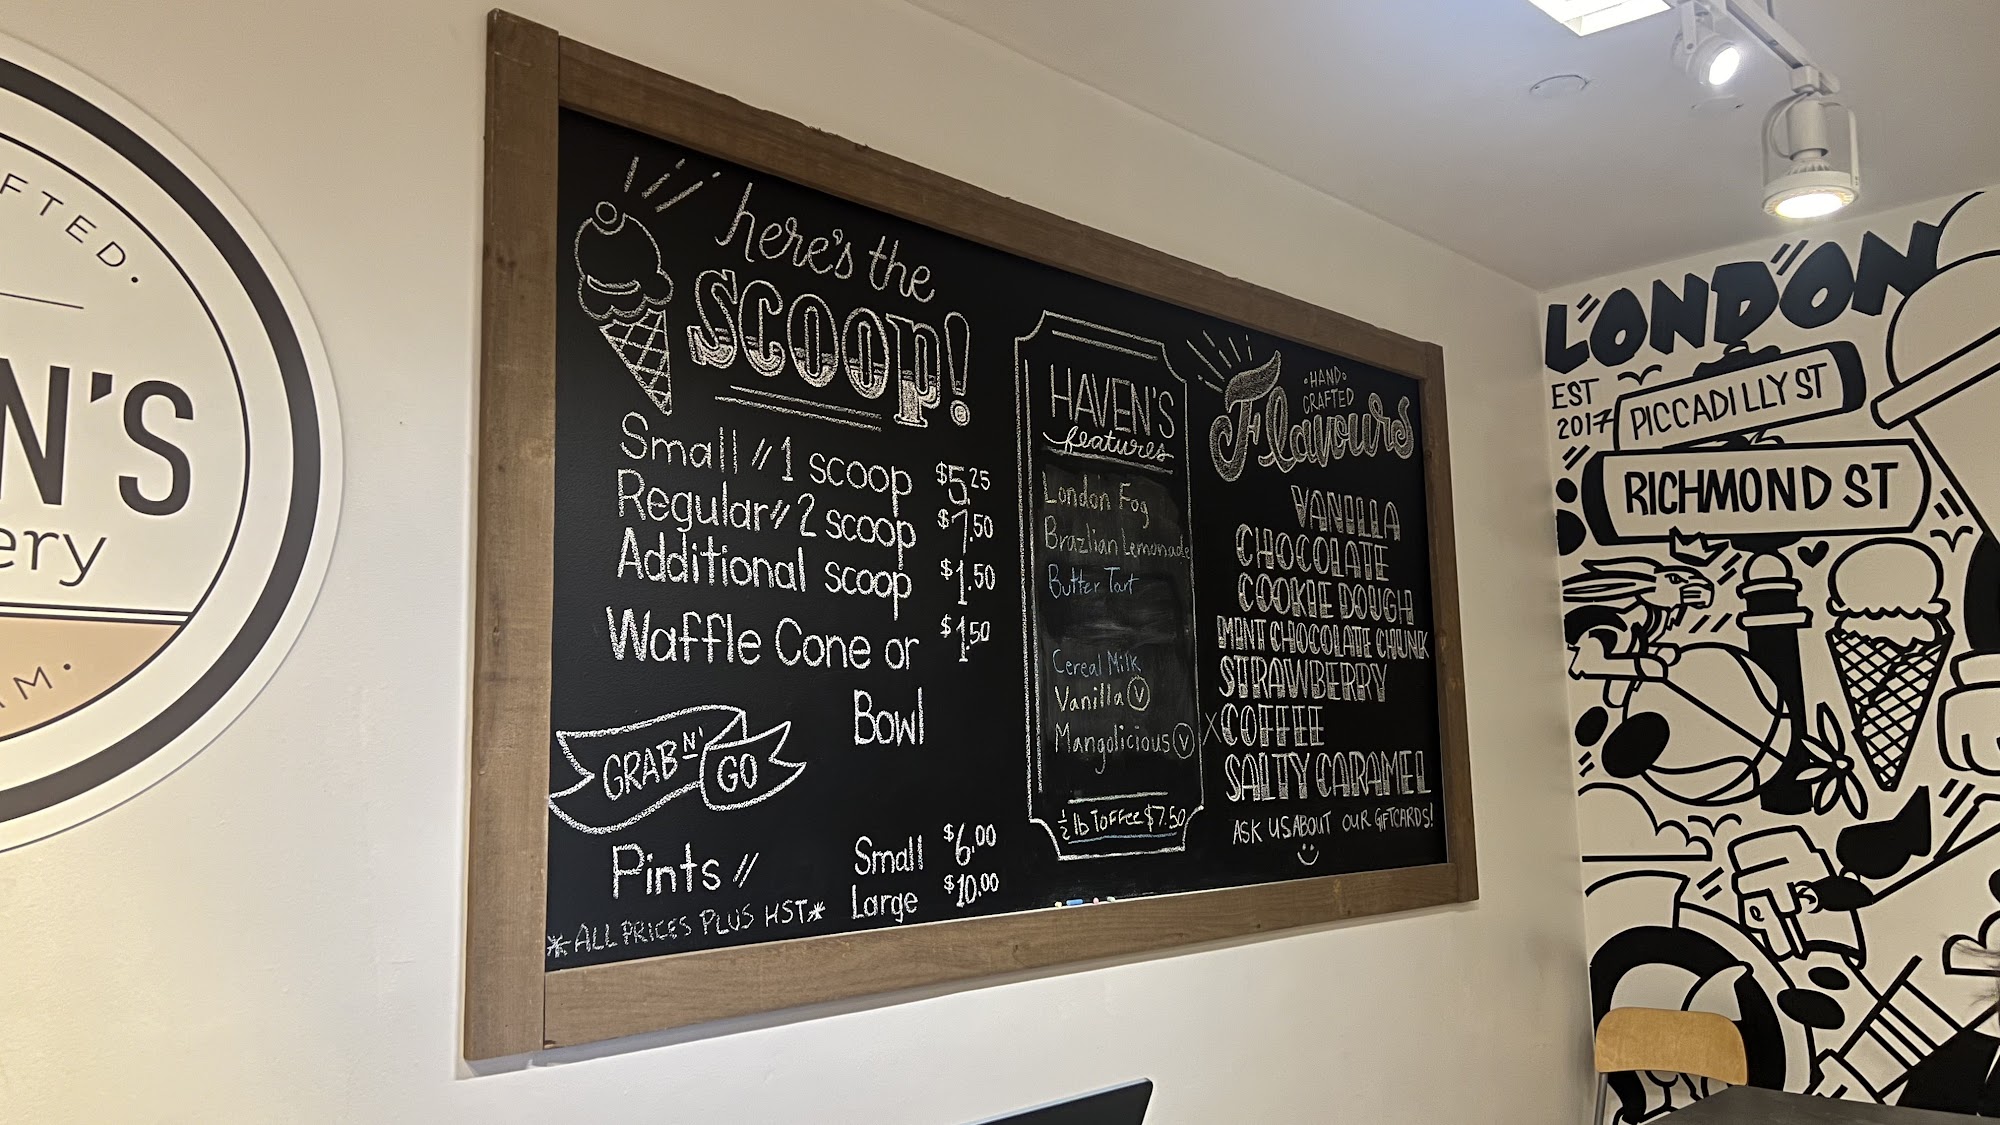 FTED.
N'S
ery
M
here's the
SCOOP!
Small // 1 scoop $5.25
Regular // 2 scoop $7.50
Additional scoop $1.50
Waffle Cone or $1.50
Bowl
GRAB N' GO
Pints // Small $6.00
Large $10.00
*ALL PRICES PLUS HST*
HAVEN'S
features
London Fog
Brazlian Lemonade
Butter Tart
Cereal Milk
Vanilla V
Mangolicious V
1/2 lb Toffee $7.50
HAND
CRAFTED
Flavours
VANILLA
CHOCOLATE
COOKIE DOUGH
MINT CHOCOLATE CHUNK
STRAWBERRY
X COFFEE
SALTY CARAMEL
ASK US ABOUT OUR GIFTCARDS!
LONDON
EST
2017
PICCADILLY ST
RICHMOND ST